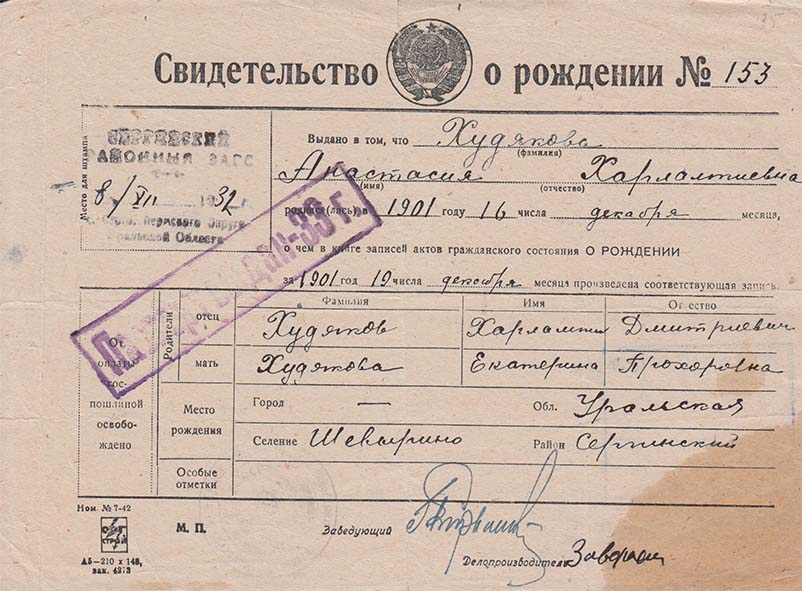 135
Свидетельство о рождении № 153
Место для штампа
СЕРГИНСКИЙ
РАЙОННЫЙ ЗАГС
8/XII 1932 г.
Пермского Округа
Уральской Области
Выдано в том, что Худякова
(фамилия)
Анастасия Харлампиевна
(имя) (отчество)
родился(лась) в 1901 году 16 числа декабря месяца,
о чем в книге записей актов гражданского состояния О РОЖДЕНИИ
за 1901 год 19 числа декабря месяца произведена соответствующая запись.
От оплаты гос-
пошлиной
освобо-
ждено
Родители
Фамилия Имя Отчество
отец Худяков Харлампий Дмитриевич
мать Худякова Екатерина Прохоровна
Место рождения
Город — Обл. Уральская
Селение Район Сергинский
Особые отметки
Ном. № 7-42
М. П.
Заведующий
Делопроизводитель
ОРГ
СТРОЙ
А5—210 x 148,
зак. 4273